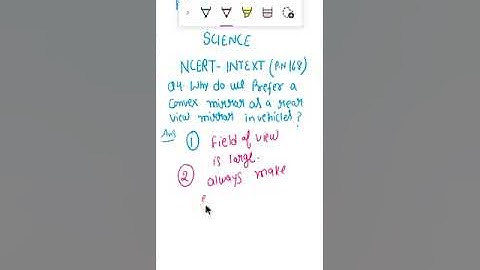 SCIENCE
NCERT- INTEXT (PN 168)
Q4. Why do we Prefer a
Convex mirror as a rear
view mirror in vehicles?
Ans
① field of view
is large.
② always make